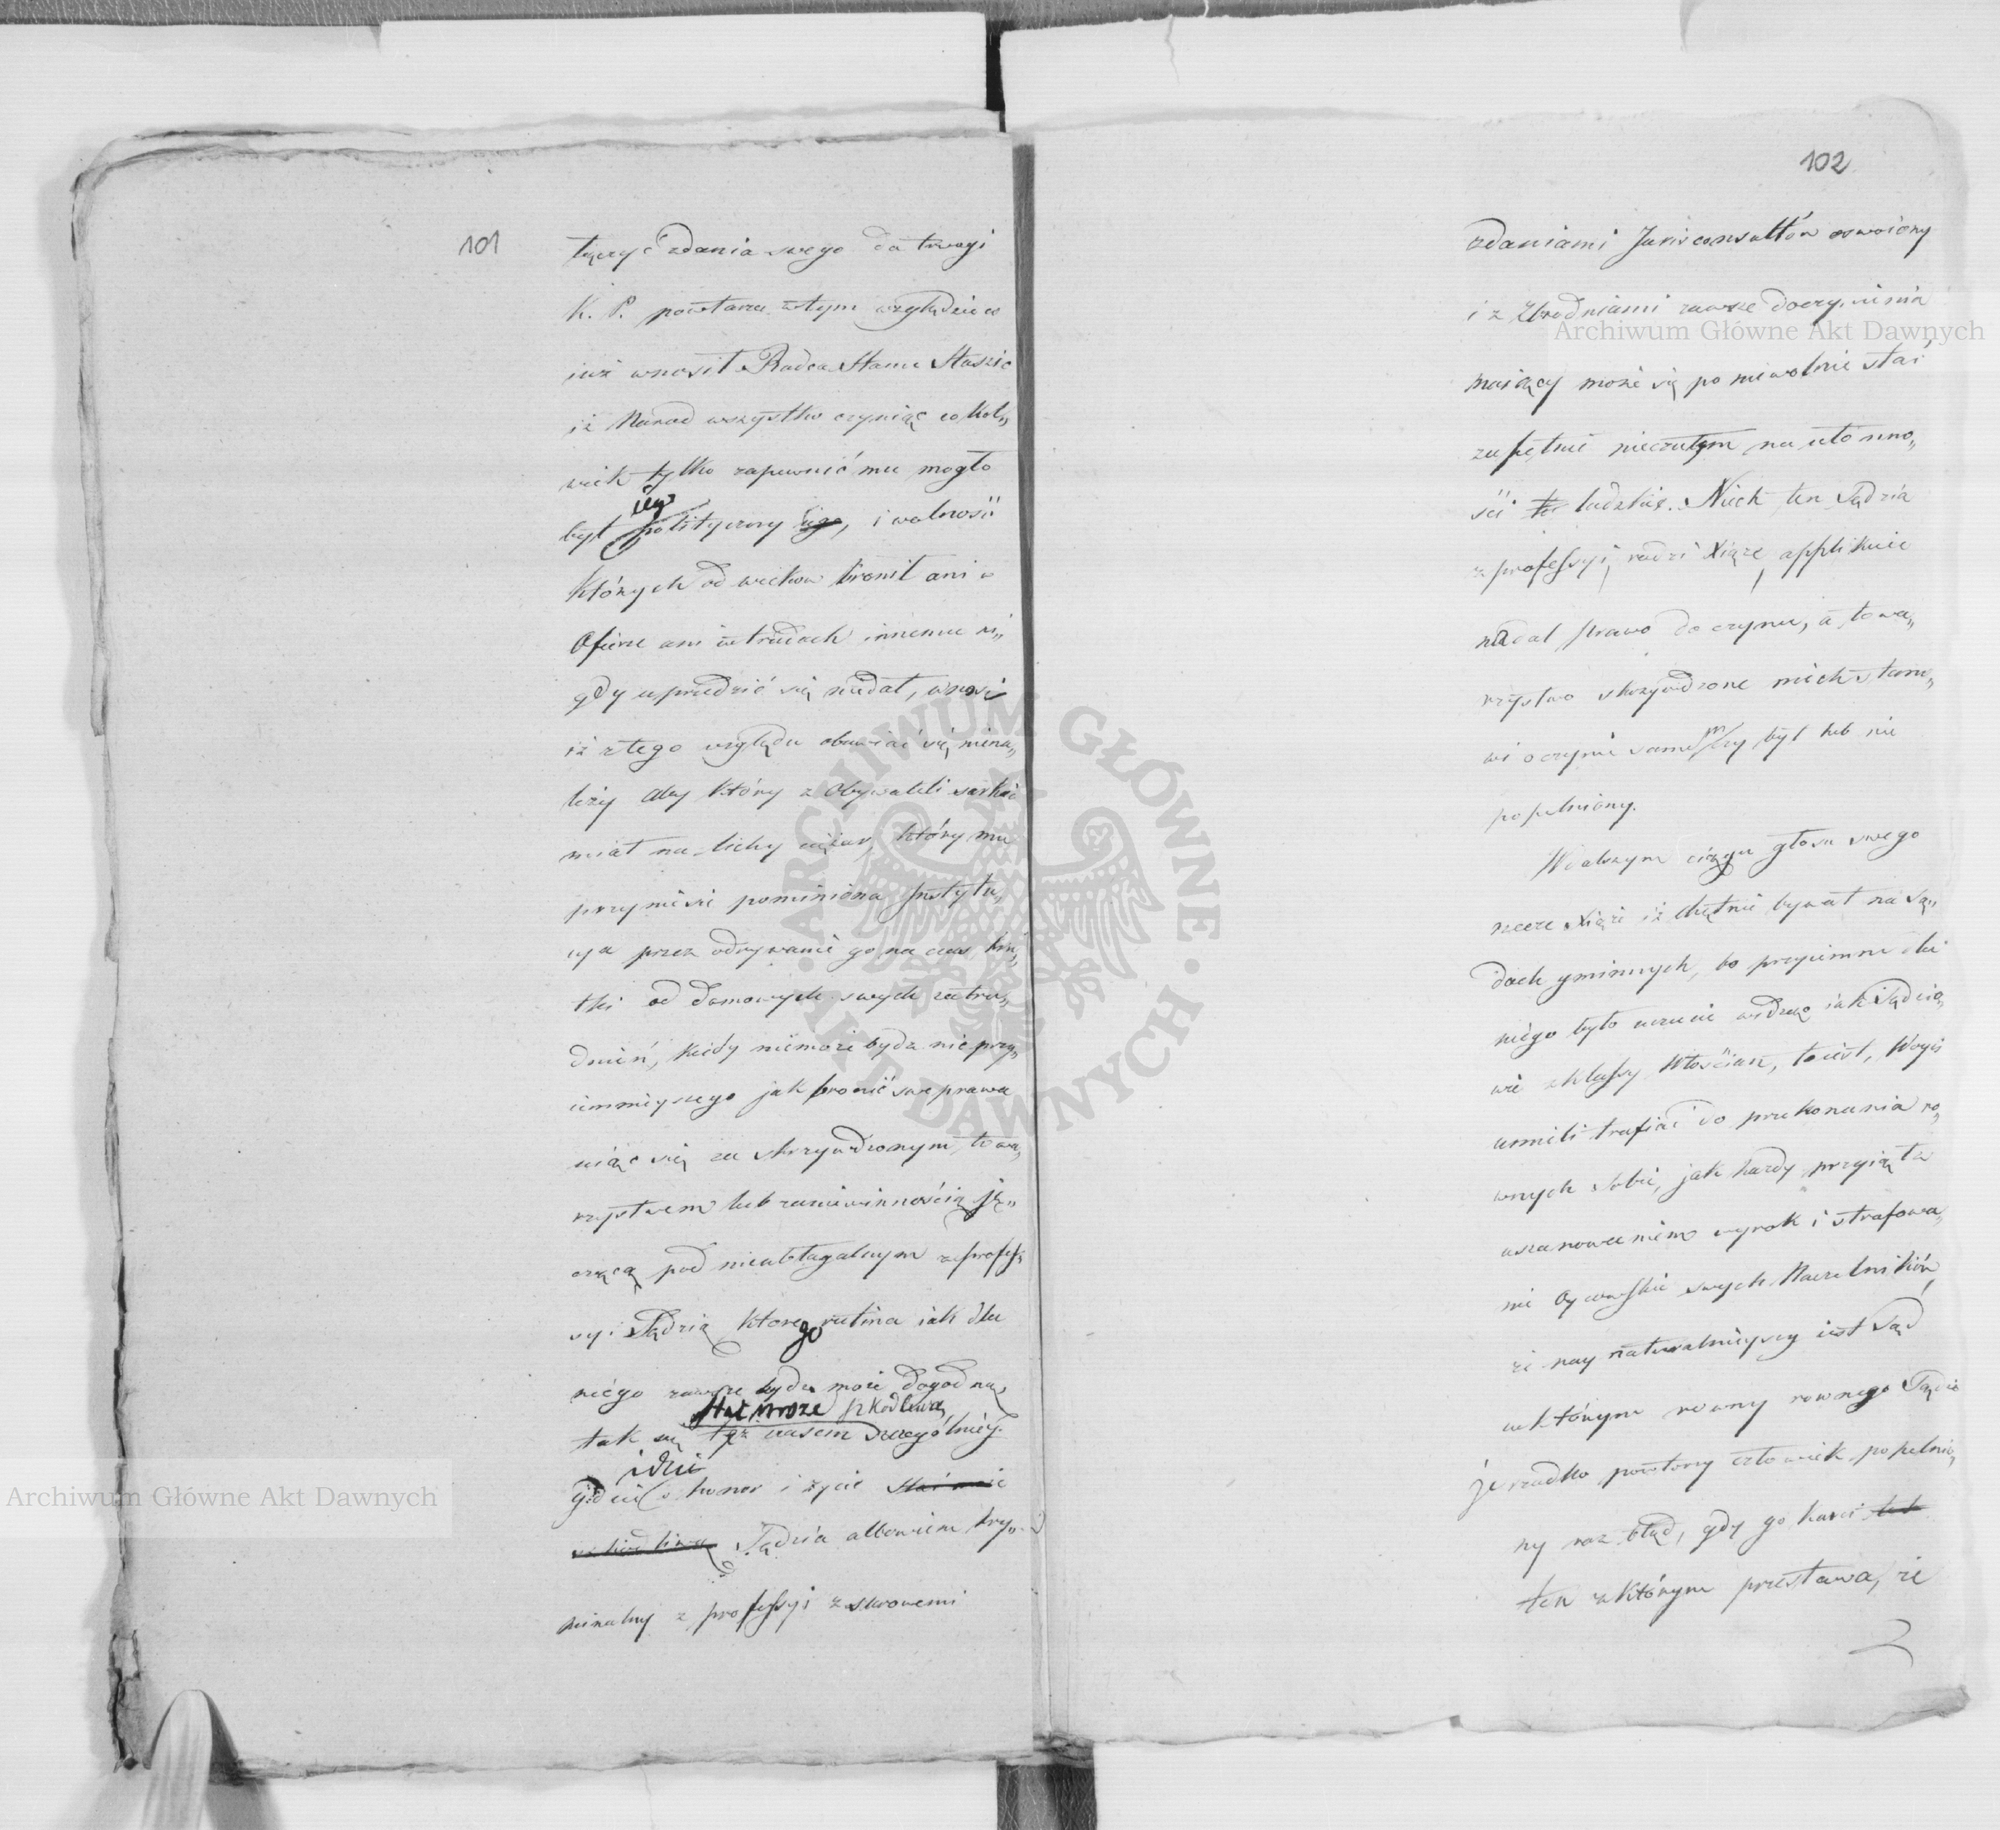 101
łączyć zdania swego do uwagi
K. P. powtarza w tym względzie co
już wnosił Radca Stanu Staszic
iż Narod wszystko czyniąc cokol„
wiek tylko zapewnić mu mogło
iego
byt polityczny iego, i wolność
których od wieków bronił ani w
Ofierze ani w trudach innemu ni„
gdy uprzedzić się niedał, wnosi
iż z tego względu obawiać się niena„
leży aby który z Obywateli sarkać
miał na lichy ciężar, który mu
przyniesie pominiona Instytu„
cya przez odrywanie go na czas krót„
tki od domowych swych zatru„
dnień, kiedy niemoże bydz nic przy„
iemnieyszego jak bronić swe prawa
uiąc się za skrzywdzonym towa„
rzystwem lub za niewinnością ję„
czącą pod nieubłaganym z profes„
syi Sędzią którego rutina iak dla
niego zawsze bydz może dogodną,
stać może szkodliwą
tak się też czasem szczególniey
idzie
gdzie o honor i życie stać może
szkodliwą Sędzia albowiem kry„
minalny z professyi z surowemi
102
zdaniami Jurisconsultów oswoiony
i z zbrodniami zawsze do czynienia
maiący może się po niewolnie stać
zupełnie nieczułym na ułomno„
ści ludzkie. Niech ten Sędzia
z professyi, radzi Xiąże, applikuie
nadal prawo do czynu, a towa„
rzystwo skrzywdzone niech stano„
wi o czynie samym czy był lub nie
popełniony.
W dalszym ciągu głosu swego
rzecze Xiąże iż chętnie bywał na Są„
dach gminnych, bo przyiemne dla
niego było uczucie widząc iak Sędzio„
wie z klassy Włościan, to iest, Woyci
umieli trafiać do przekonania ro„
wnych sobie, jak każdy przyiął z
uszanowaniem wyrok i strofowa„
nie Oycowskie swych Naczelników,
że nay naturalnieyszy iest Sąd
w którym rowny rownego Sądzi
że rzadko powtorzy człowiek popełnio„
ny raz błąd, gdy go karci lub
ten z którym przestawa, że
Archiwum Główne Akt Dawnych
Archiwum Główne Akt Dawnych
ARCHIWUM GŁÓWNE AKT DAWNYCH